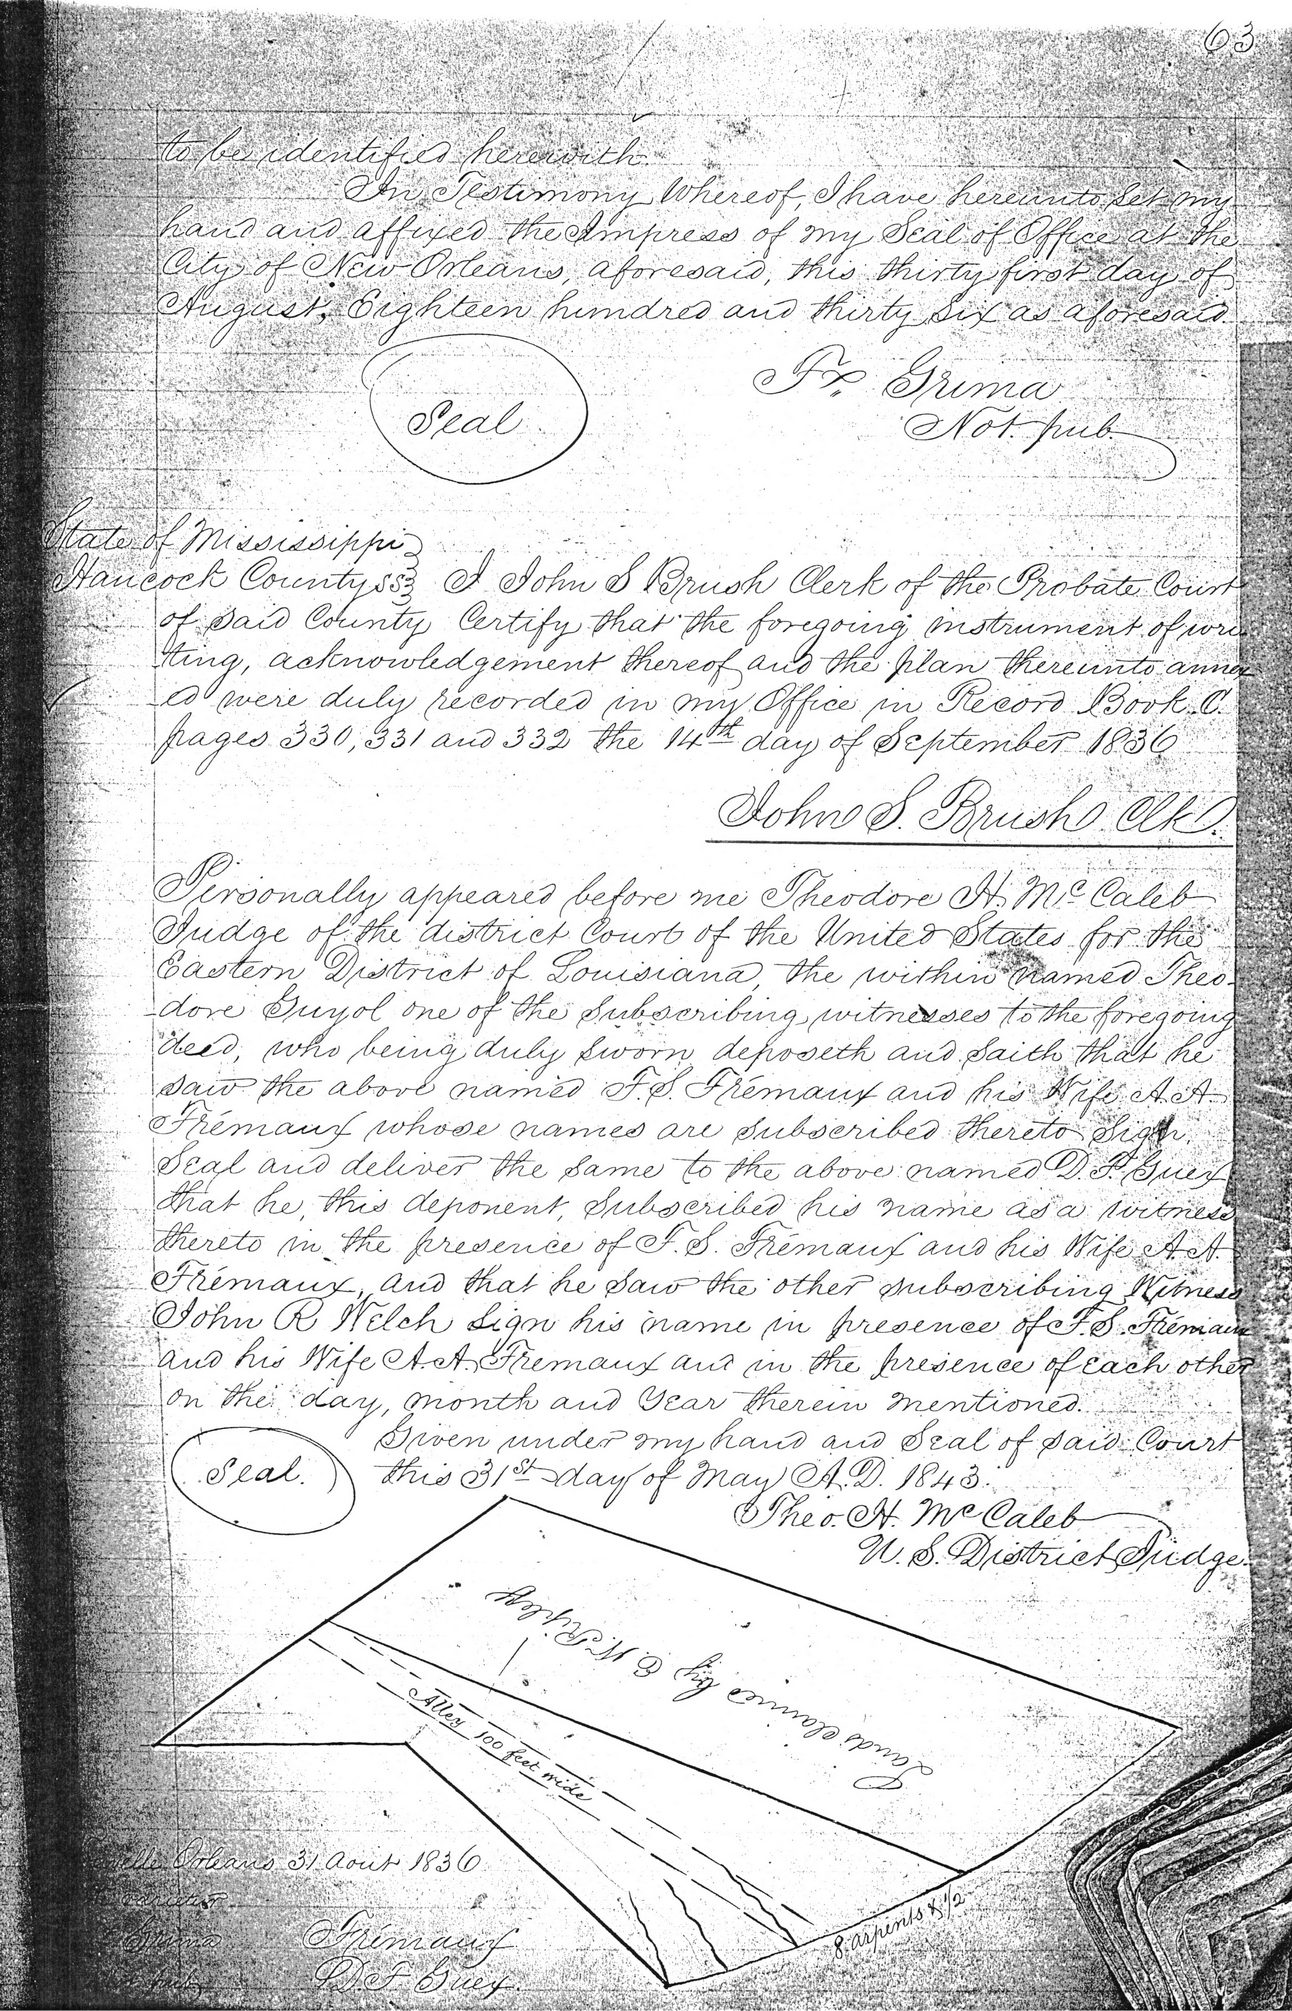 63
to be identified herewith.
In Testimony Whereof, I have hereunto Set my
hand and affixed the Impress of my Seal of Office at the
City of New Orleans, aforesaid, this thirty first day of
August, Eighteen hundred and thirty Six as aforesaid.
Fx Grima
Seal
Not. pub.
State of Mississippi
Hancock County ss I John S Brush Clerk of the Probate Court
of said County Certify that the foregoing instrument of wri
ting, acknowledgement thereof and the plan thereunto annex
ed were duly recorded in my Office in Record Book C.
pages 330, 331 and 332 the 14th day of September 1836
John S. Brush Clk.
Personally appeared before me Theodore H. McCaleb
Judge of the district Court of the United States for the
Eastern District of Louisiana, the within named Theo-
dore Guyol one of the Subscribing witnesses to the foregoing
deed, who being duly sworn deposeth and saith that he
saw the above named F. S. Frémaux and his Wife A. A.
Frémaux whose names are subscribed thereto Sign,
Seal and deliver the same to the above named D. F. Guex
that he, this deponent, Subscribed his name as a witness
thereto in the presence of F. S. Frémaux and his Wife A. A.
Frémaux, and that he saw the other subscribing Witness
John R Welch Sign his name in presence of F. S. Frémaux
and his Wife A. A. Fremaux and in the presence of Each other
on the day, month and Year therein mentioned.
Given under my hand and Seal of said Court
Seal. this 31st day of May A.D. 1843.
Theo. H. McCaleb
U. S. District Judge.
Lands claimed by E. W. Ripley
Alley 100 feet wide
8 arpents & 1/2
Orleans 31 Aout 1836
Frémaux
D. F. Guex.